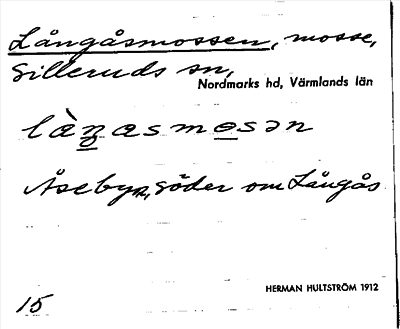 Långåsmossen, mosse,
Silleruds sn,
Nordmarks hd, Värmlands län
làŋasmosən
Åsebyn, söder om Långås
HERMAN HULTSTRÖM 1912
15